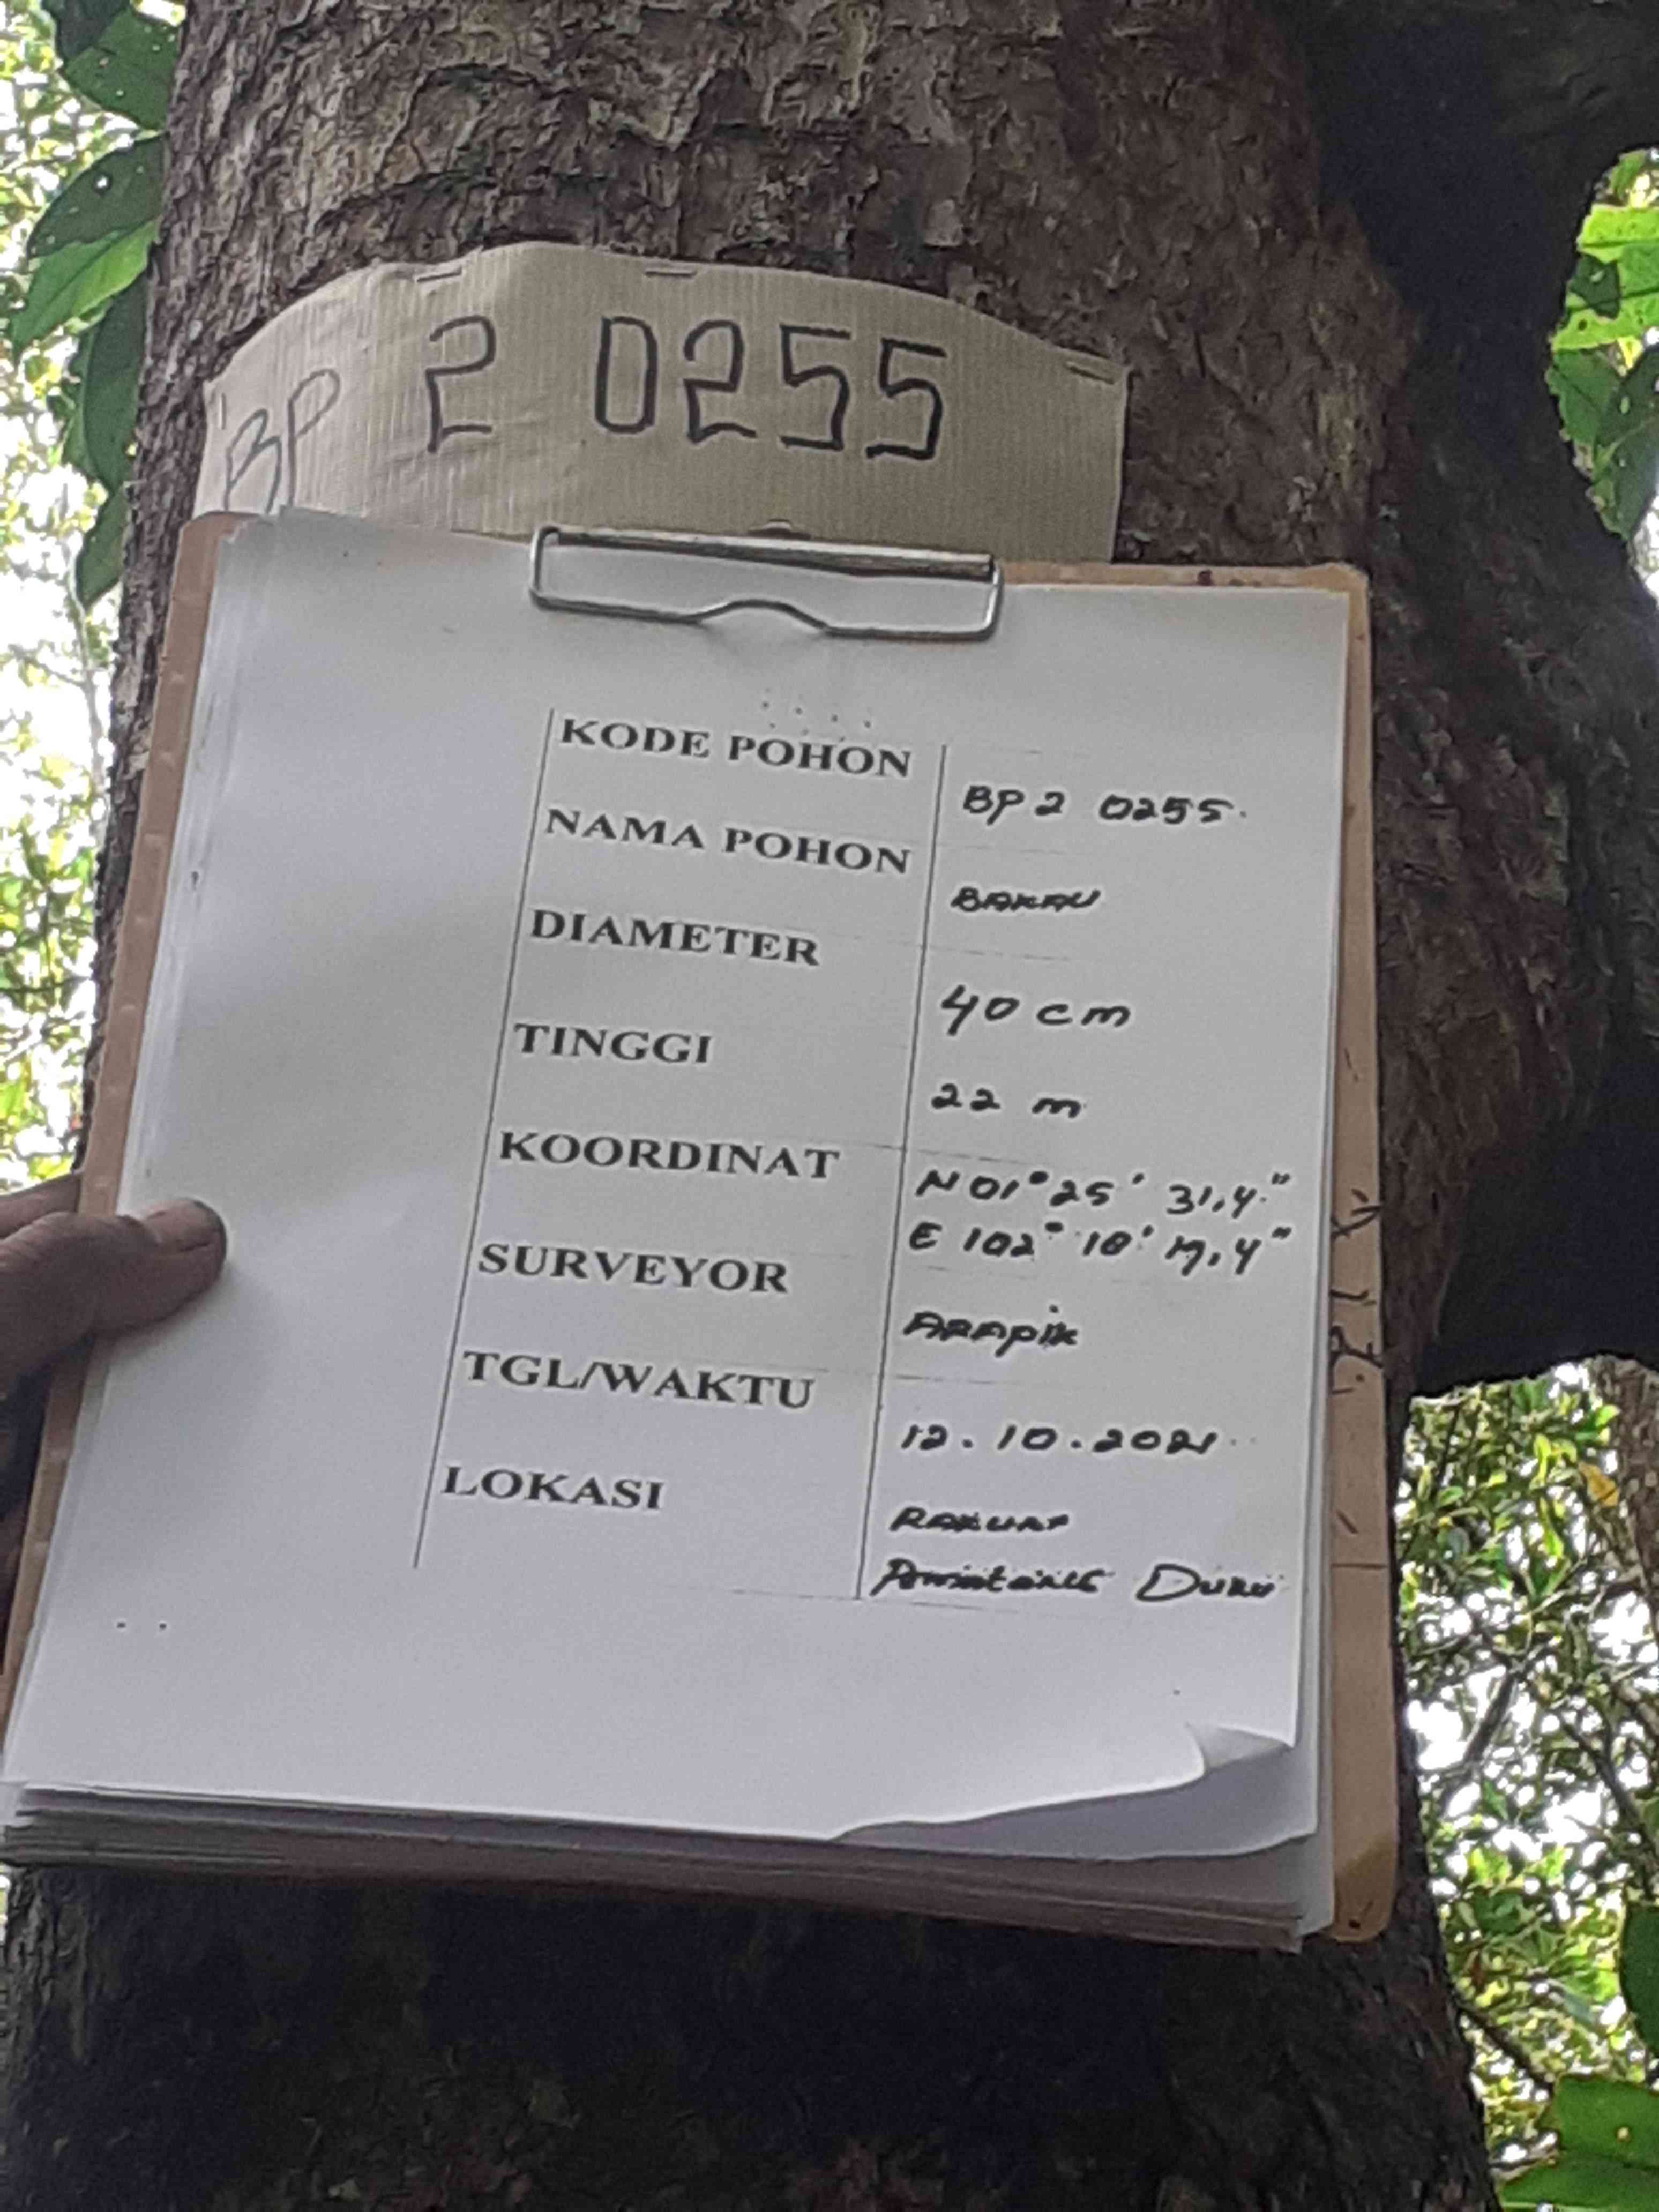 BP 2 0255
KODE POHON BP 2 0255.
NAMA POHON BAKAU
DIAMETER 40 cm
TINGGI 22 m
KOORDINAT N 01° 25' 31,4"
E 102° 10' 17,4"
SURVEYOR ARAPIK
TGL/WAKTU 12.10.2021
LOKASI